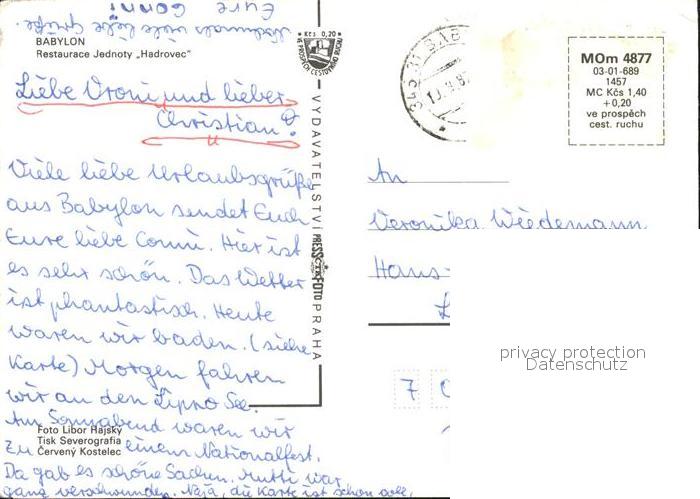 Nochmals viele liebe Grüße.
Eure
Conni
BABYLON
Restaurace Jednoty „Hadrovec"
Liebe Vroni und lieber
Christian!
Viele liebe Urlaubsgrüße
aus Babylon sendet Euch
Eure liebe Conni. Hier ist
es sehr schön. Das Wetter
ist phantastisch. Heute
waren wir baden. (siehe
Karte) Morgen fahren
wir an den Lipno See.
Am Sonnabend waren wir
zu einem Nationalfest.
Da gab es schöne Sachen. Mutti war
ganz verschwunden. Naja, die Karte ist schon voll,
Foto Libor Hajský
Tisk Severografia
Červený Kostelec
Kčs 0,20
VE PROSPĚCH CESTOVNÍHO RUCHU
VYDAVATELSTVÍ PRESSFOTO PRAHA
345 31 BAB
MOm 4877
03-01-689
1457
MC Kčs 1,40
+0,20
ve prospěch
cest. ruchu
An
Veronika Wiedemann
Hans-
7
privacy protection
Datenschutz